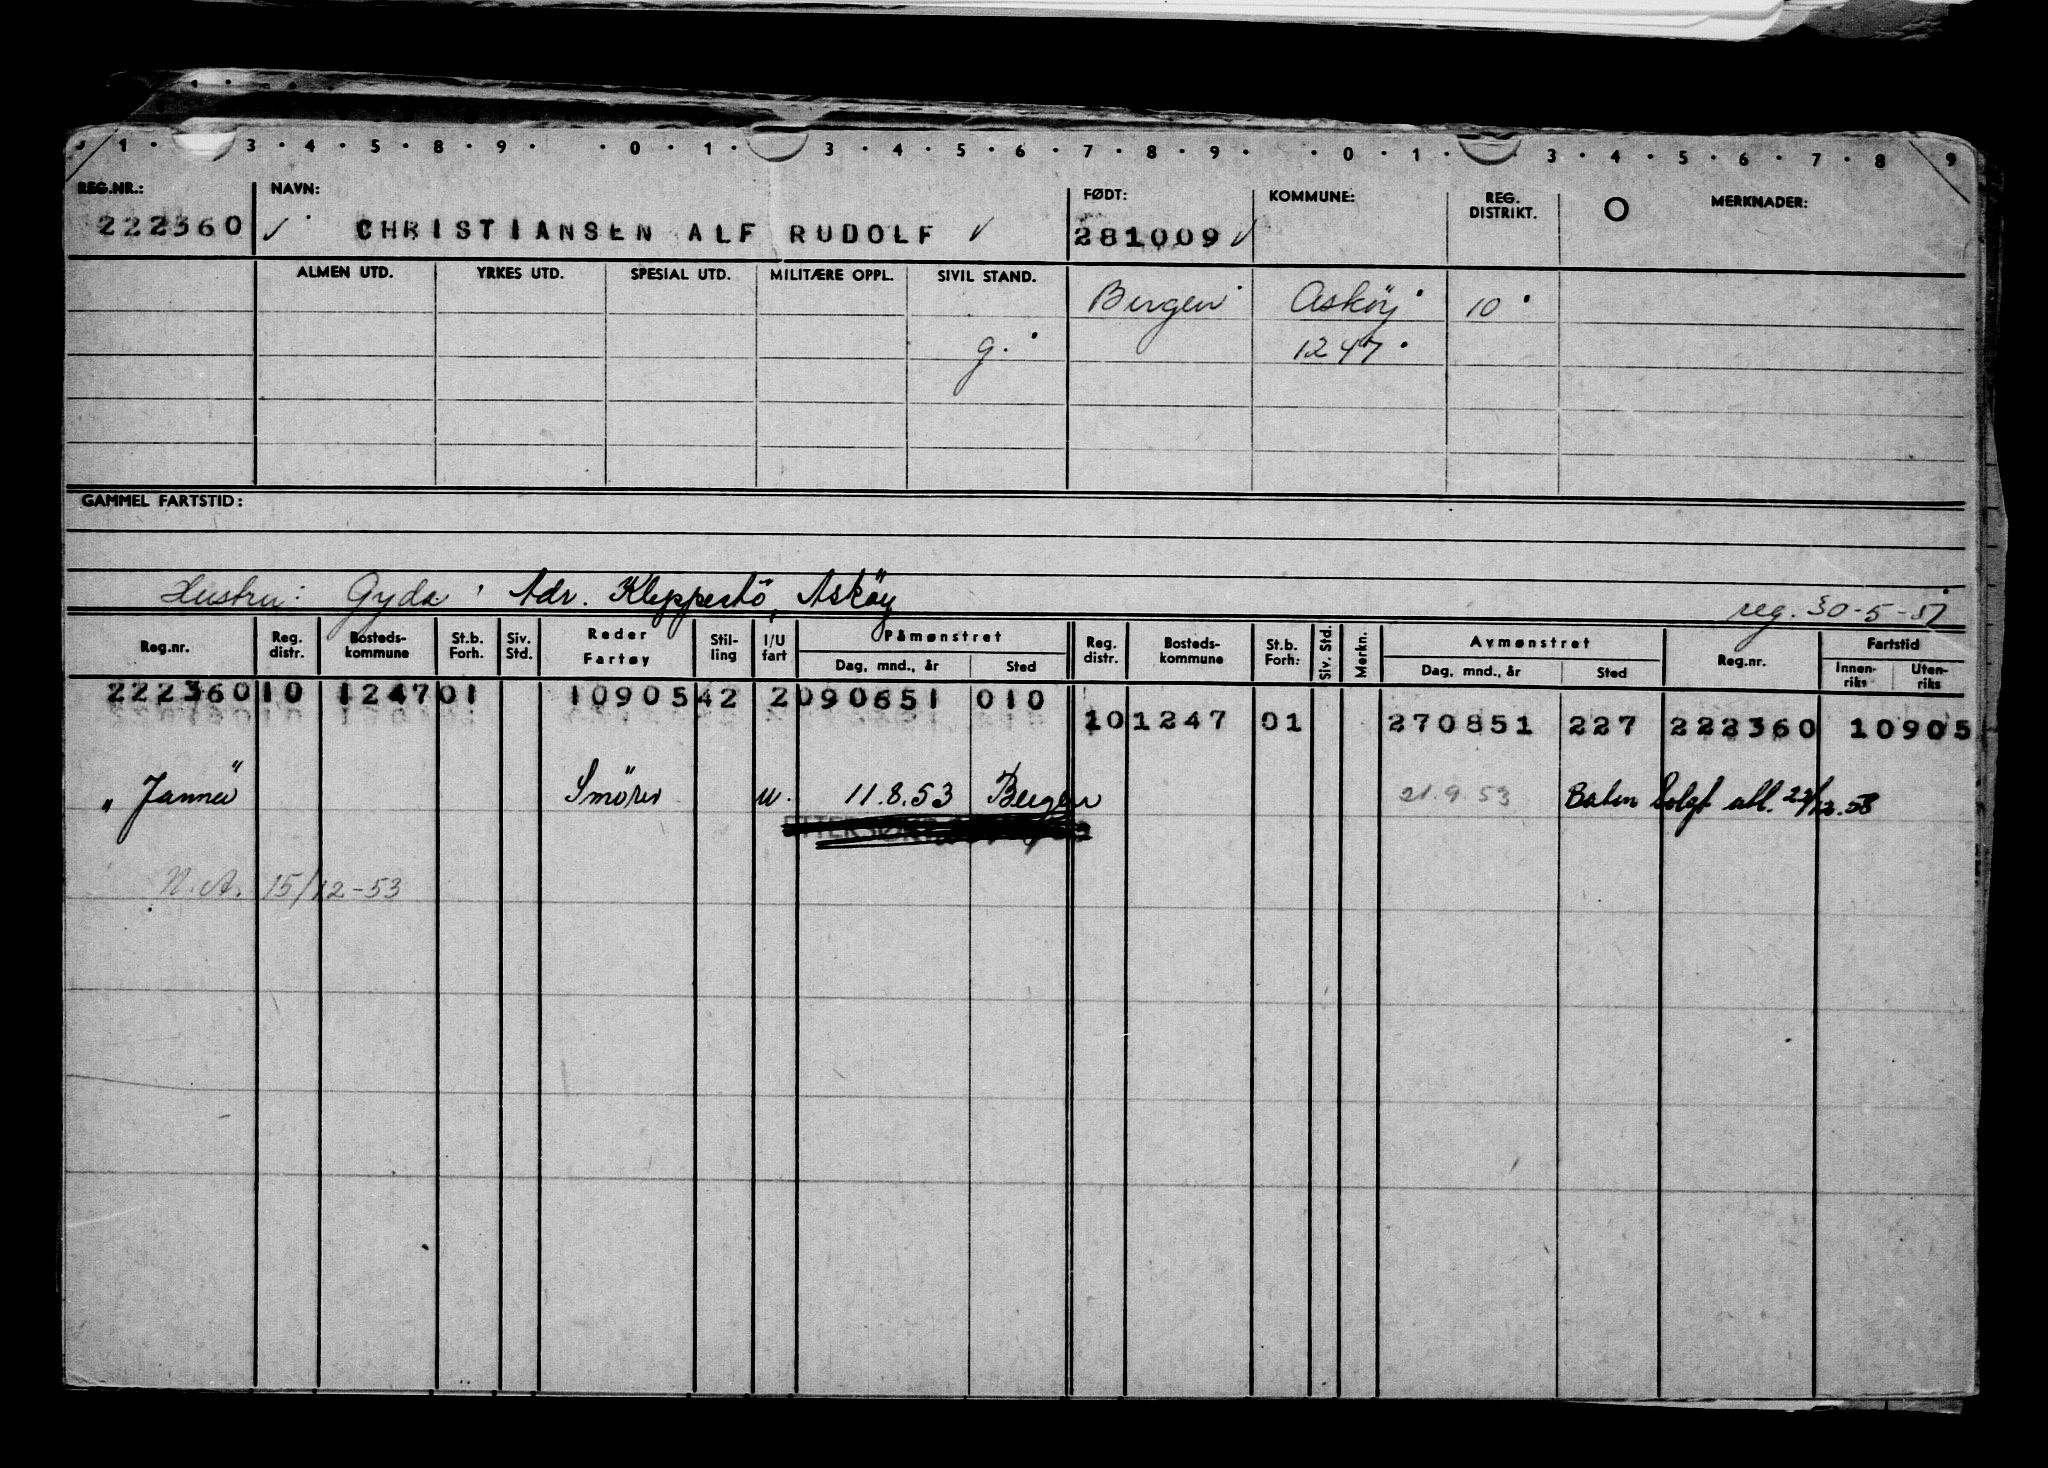 1 · 3 · 4 · 5 · 8 · 9 · · 0 · 1 · 3 · 4 · 5 · 6 · 7 · 8 · 9 · · 0 · 1 · 3 · 4 · 5 · 6 · 7 · 8 9
REG.NR.: NAVN: FØDT: KOMMUNE: REG. DISTRIKT. O MERKNADER:
222360 CHRISTIANSEN ALF RUDOLF 281009
ALMEN UTD. YRKES UTD. SPESIAL UTD. MILITÆRE OPPL. SIVIL STAND.
Bergen Asköy 10
g. 1247
GAMMEL FARTSTID:
Hustru: Gyda Adr. Kleppestö, Asköy reg. 30-5-51
Reg.nr. Reg. distr. Bosteds-kommune St.b. Forh. Siv. Std. Reder Fartøy Stil-ling I/U fart Påmønstret Dag, mnd., år Sted Reg. distr. Bosteds-kommune St.b. Forh: Siv. Std. Merkn. Avmønstret Dag, mnd., år Sted Reg.nr. Fartstid Innen-riks Uten-riks
222360 10 1247 01 10905 42 2 090651 010
10 1247 01 270851 227 222360 10905
"Janna" Smörer u. 11.8.53 Bergen 21.9.53 Baten solgt all. 22/12.53
N.A. 15/12-53